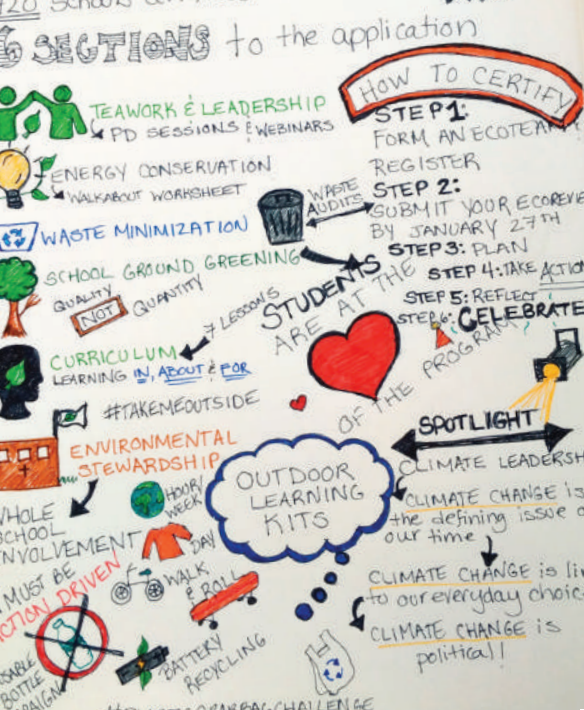 SCHOOLS
6 SECTIONS to the application
TEAWORK & LEADERSHIP
PD SESSIONS & WEBINARS
ENERGY CONSERVATION
WALKABOUT WORKSHEET
WASTE MINIMIZATION
WASTE
AUDITS
SCHOOL GROUND GREENING
QUALITY
NOT
QUANTITY
7 LESSONS
CURRICULUM
LEARNING IN, ABOUT & FOR
#TAKEMEOUTSIDE
ENVIRONMENTAL
STEWARDSHIP
WHOLE
SCHOOL
INVOLVEMENT
MUST BE
ACTION DRIVEN
HOUR/
WEEK
DAY
WALK
& ROLL
BATTERY
RECYCLING
HOW TO CERTIFY
STEP 1:
FORM AN ECOTEAM
REGISTER
STEP 2:
SUBMIT YOUR ECOREVIE
BY JANUARY 27TH
STEP 3: PLAN
STEP 4: TAKE ACTION
STEP 5: REFLECT
STEP 6: CELEBRATE
STUDENTS
ARE AT THE
OF THE PROGRAM
OUTDOOR
LEARNING
KITS
SPOTLIGHT
CLIMATE LEADERSH
CLIMATE CHANGE is
the defining issue o
our time
CLIMATE CHANGE is li
to our everyday choic
CLIMATE CHANGE is
political!